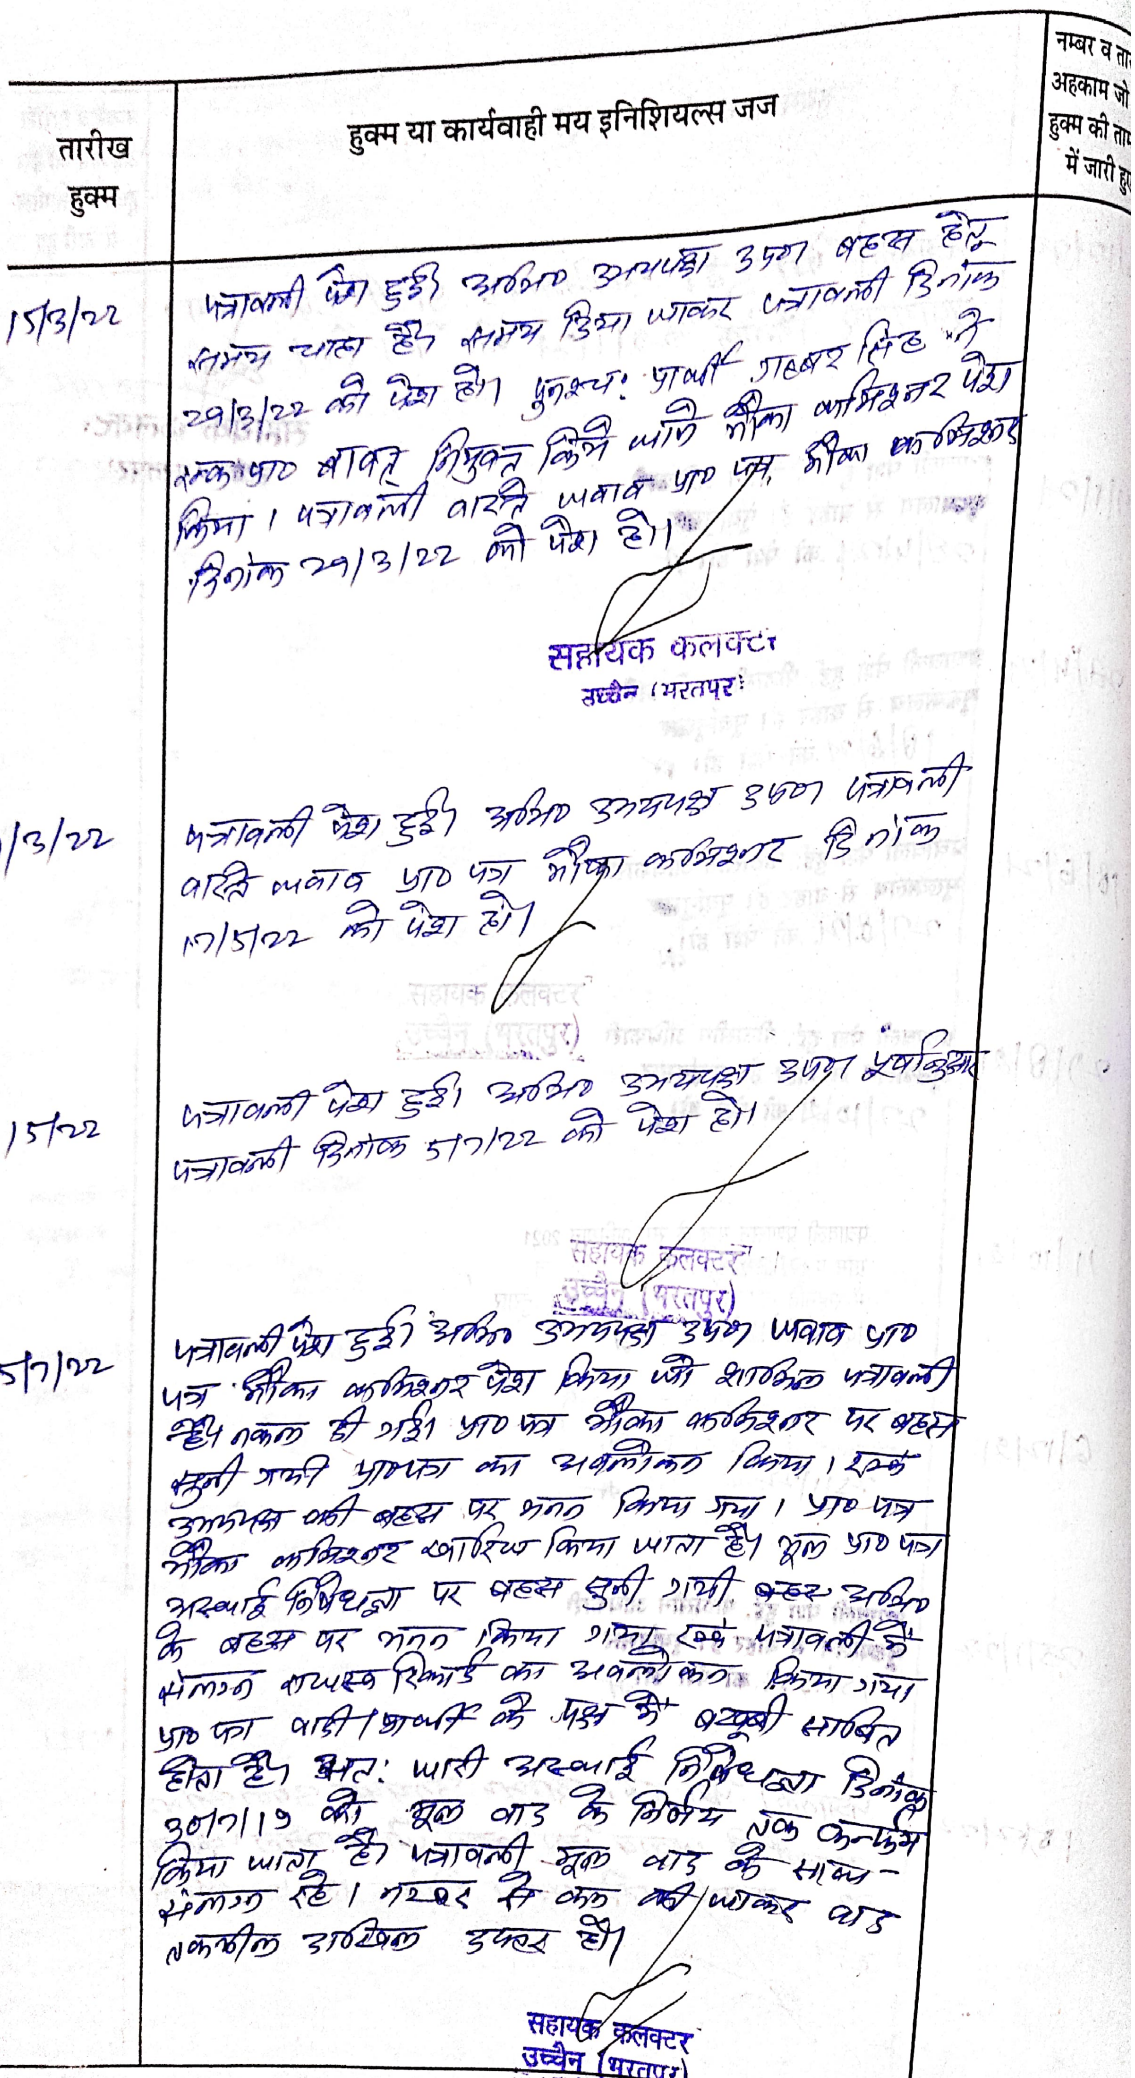 तारीख
हुक्म
हुक्म या कार्यवाही मय इनिशियल्स जज
नम्बर व ता
अहकाम जो
हुक्म की ता
में जारी हु
15/3/22
पत्रावली पेश हुई। अभि० उभयपक्ष उप० बहस हेतू
समय चाहा है। समय दिया जाकर पत्रावली दिनांक
29/3/22 को पेश हो। पुनश्चः प्रार्थी गब्बर सिंह ने
एक प्रा० बाबत् नियुक्त किये जाने मौका कमिश्नर पेश
किया। पत्रावली वास्ते जवाब प्रा० पत्र मौका कमिश्नर
दिनांक 29/3/22 को पेश हो।
सहायक कलक्टर
उच्चैन (भरतपुर)
/3/22
पत्रावली पेश हुई। अभि० उभयपक्ष उप० पत्रावली
वास्ते जवाब प्रा० पत्र मौका कमिश्नर दिनांक
17/5/22 को पेश हो।
/5/22
पत्रावली पेश हुई। अभि० उभयपक्ष उप० पूर्वानुसार
पत्रावली दिनांक 5/7/22 को पेश हो।
सहायक कलक्टर
उच्चैन (भरतपुर)
5/7/22
पत्रावली पेश हुई। अभि० उभयपक्ष उप० जवाब प्रा०
पत्र मौका कमिश्नर पेश किया जो शामिल पत्रावली
है। नकल दी गई। प्रा० पत्र मौका कमिश्नर पर बहस
सुनी गयी प्रा०पत्र का अवलोकन किया। एवं
उभयपक्ष की बहस पर मनन किया गया। प्रा० पत्र
मौका कमिश्नर खारिज किया जाता है। मूल प्रा० पत्र
अस्थाई निषेधाज्ञा पर बहस सुनी गयी बहस अभि०
के बहस पर मनन किया गया एवं पत्रावली में
संलग्न राजस्व रिकार्ड का अवलोकन किया गया
प्रा० पत्र वादी/प्रार्थी के पक्ष में बखूबी साबित
होता है। अतः जारी अस्थाई निषेधाज्ञा दिनांक
30/7/19 को मूल वाद के निर्णय तक कन्फर्म
किया जाता है। पत्रावली मूल वाद के साथ-
संलग्न रहे। नम्बर से कम की जाकर वाद
तकमील दाखिल दफ्तर हो।
सहायक कलक्टर
उच्चैन (भरतपुर)